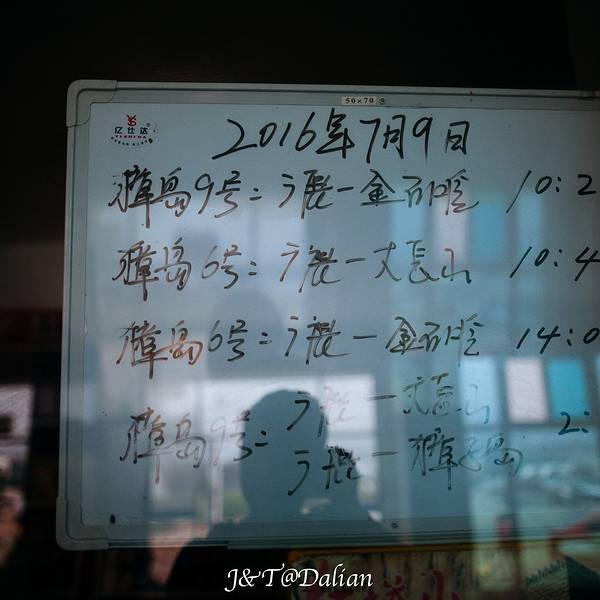 50×70
亿仕达
2016年7月9日
獐岛9号: 广鹿一金石滩 10:2
獐岛6号: 广鹿一大长山 10:4
獐岛6号: 广鹿一金石滩 14:0
獐岛9号: 广鹿一大长山 2:
广鹿一獐子岛
J&T@Dalian